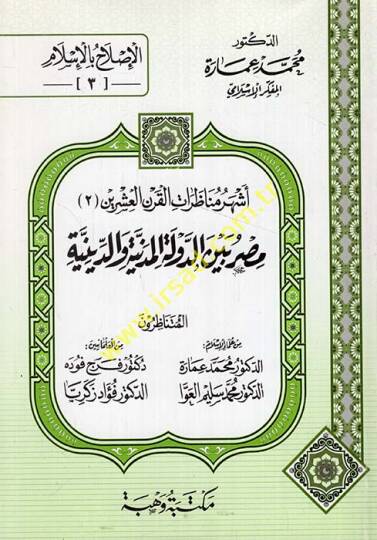 الدكتور
محمد عمارة
المفكر الإسلامي
الإصلاح بالإسلام
[ ٣ ]
أشهر مناظرات القرن العشرين (٢)
مصر بين الدولة المدنية والدينية
المتناظرون
من علماء الإسلام:
الدكتور محمد عمارة
الدكتور محمد سليم العوا
من العلمانيين:
دكتور فرج فوده
الدكتور فؤاد زكريا
مكتبة وهبة
www.irsad.com.tr